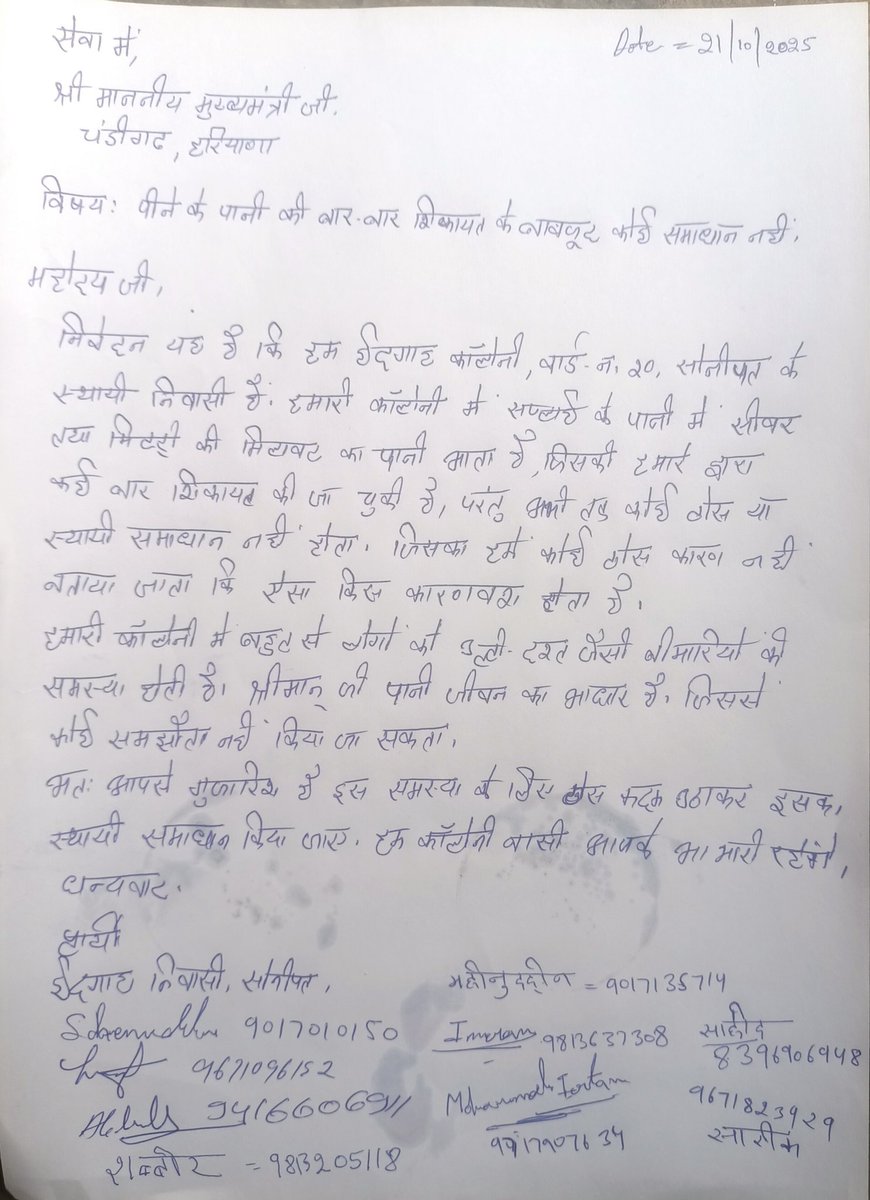 Date = 21/10/2025
सेवा में,
श्री माननीय मुख्यमंत्री जी.
चंडीगढ, हरियाणा
विषय: पीने के पानी की बार-बार शिकायत के बावजूद कोई समाधान नहीं.
महोदय जी,
निवेदन यह है कि हम ईदगाह कॉलोनी, वार्ड-नं. 20, सोनीपत के
स्थायी निवासी हैं. हमारी कॉलोनी में सप्लाई के पानी में सीवर
तथा मिटटी की मिलावट का पानी आता है, जिसकी हमारे द्वारा
कई बार शिकायत की जा चुकी है, परंतु अभी तक कोई ठोस या
स्थायी समाधान नहीं होता. जिसका हमें कोई ठोस कारण नहीं
बताया जाता कि ऐसा किस कारणवश होता है.
हमारी कॉलोनी में बहुत से लोगों को उल्टी-दस्त जैसी बीमारियों की
समस्या होती है। श्रीमान् जी पानी जीवन का आधार है. जिससे
कोई समझौता नहीं किया जा सकता.
अत: आपसे गुजारिश है इस समस्या के लिए ठोस कदम उठाकर इसका
स्थायी समाधान किया जाए. हम कॉलोनी वासी आपके आभारी रहेंगे,
धन्यवाद.
प्रार्थी
ईदगाह निवासी, सोनीपत,
महीनुददीन = 9017135714
9017010150
Imran 9813637308
8396906948
9671096152
9671823929
शब्बीर = 9813205118